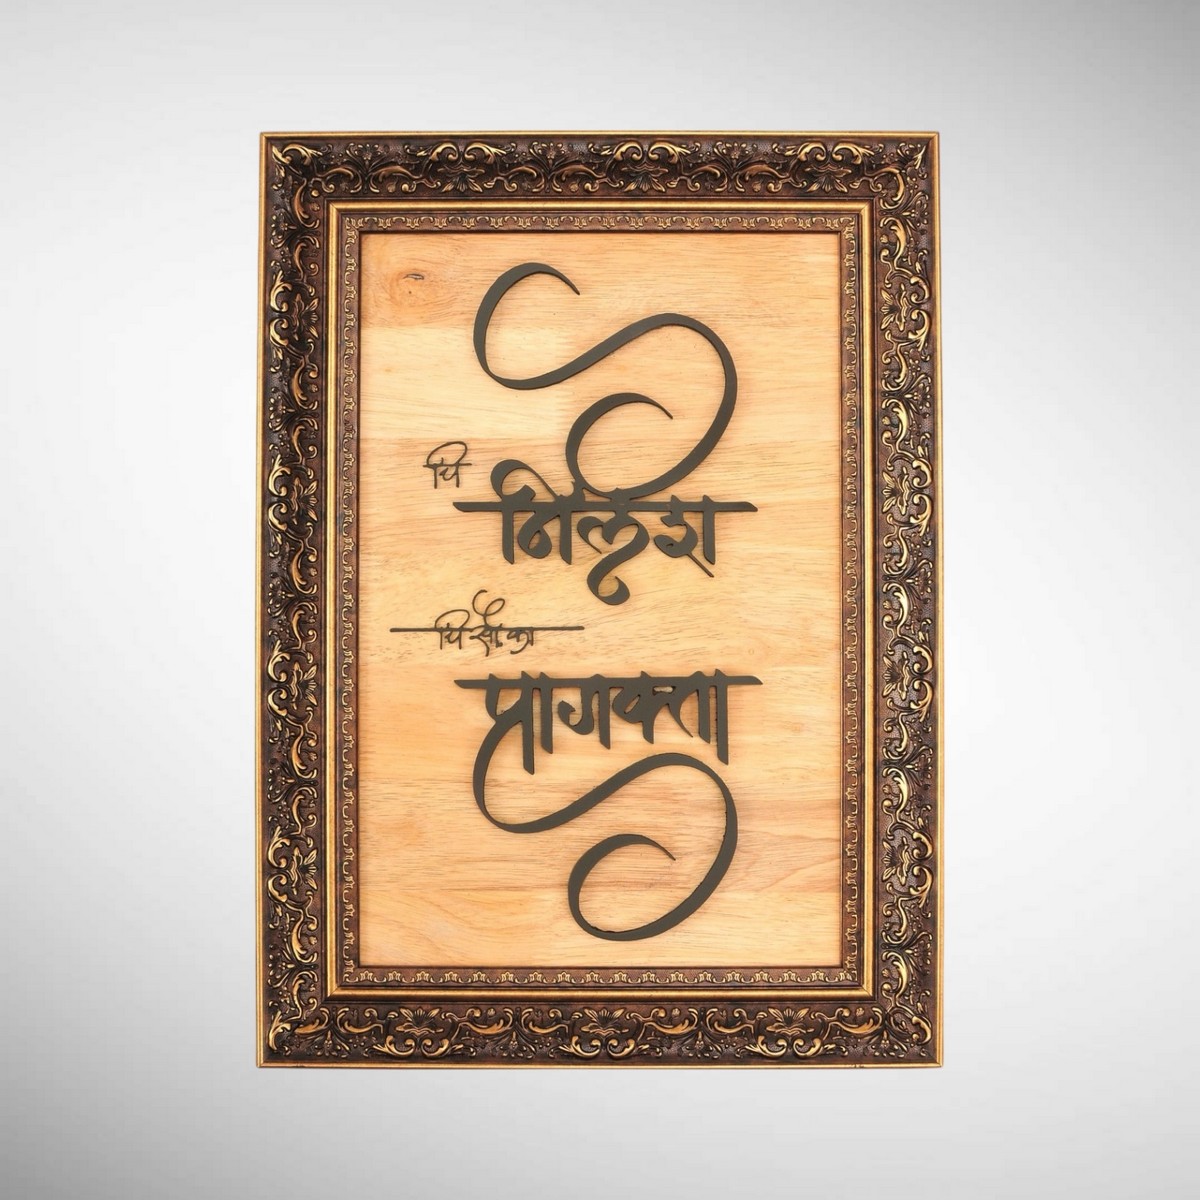 चि
निलेश
चि सौ. का
प्राजक्ता